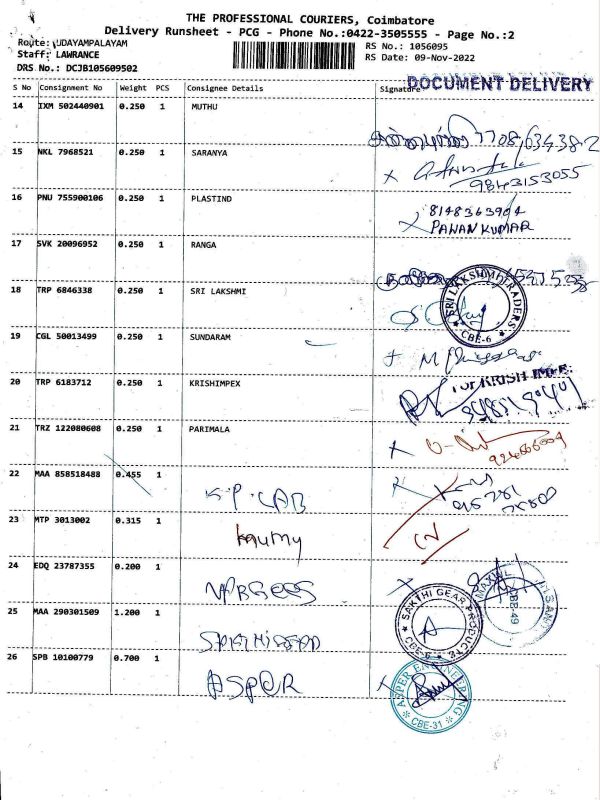 THE PROFESSIONAL COURIERS, Coimbatore
Delivery Runsheet - PCG - Phone No.:0422-3505555 - Page No.:2
Route: UDAYAMPALAYAM
RS No.: 1056095
Staff: LAWRANCE
RS Date: 09-Nov-2022
DRS No.: DCJB105609502
DOCUMENT DELIVERY
S No Consignment No Weight PCS Consignee Details Signature
14 IXM 502440901 0.250 1 MUTHU
7708634382
15 NKL 7968521 0.250 1 SARANYA
9843153055
16 PNU 755900106 0.250 1 PLASTIND
8148363904
PAWAN KUMAR
17 SVK 20096952 0.250 1 RANGA
18 TRP 6846338 0.250 1 SRI LAKSHMI
SRI LAKSHMI TRADERS
CBE-6
19 CGL 50013499 0.250 1 SUNDARAM
20 TRP 6183712 0.250 1 KRISHIMPEX
For KRISH IMPEX
21 TRZ 122080608 0.250 1 PARIMALA
22 MAA 858518488 0.455 1
K.P. LAB
23 MTP 3013002 0.315 1
24 EDQ 23787355 0.200 1
CBE-49
25 MAA 290301509 1.200 1
SAKTHI GEAR PRODUCTS
CBE-6
26 SPB 10100779 0.700 1 ASPER
ASPER ENGINEERING
CBE-31